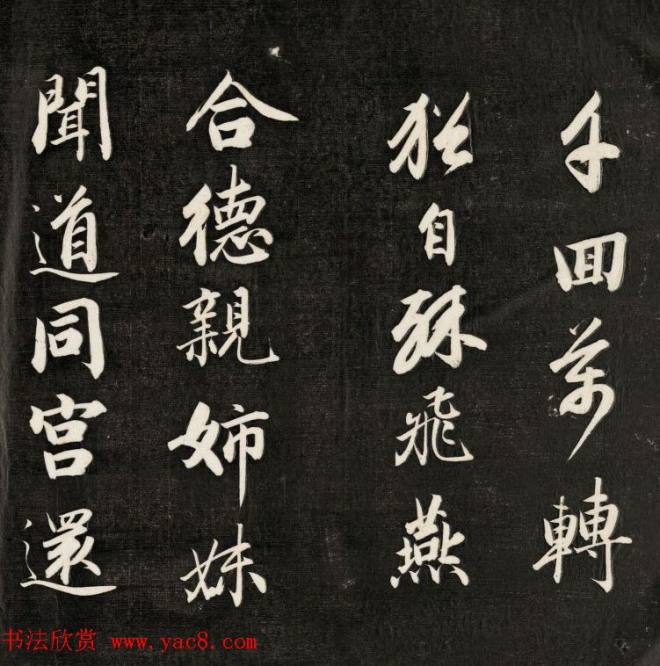 千回萬轉
猶自疎飛燕
合德親姊妹
聞道同宮還
书法欣赏 www.yac8.com